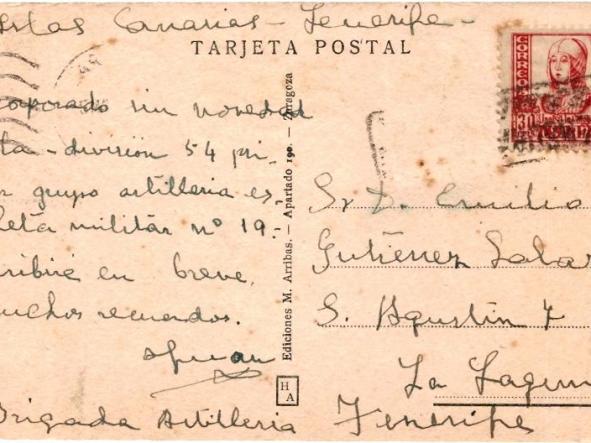 Islas Canarias - Tenerife -
TARJETA POSTAL
CORREOS
30
orporado sin novedad
ta - división 54 pri-
grupo artilleria es
leta militar nº 19.-
ribiré en breve.
uchos recuerdos.
Brigada Artilleria
Ediciones M. Arribas. — Apartado 190. — Zaragoza
HA
Sr. D. Emilio
Gutiérrez Salaz
S. Agustín 7
La Laguna
Tenerife